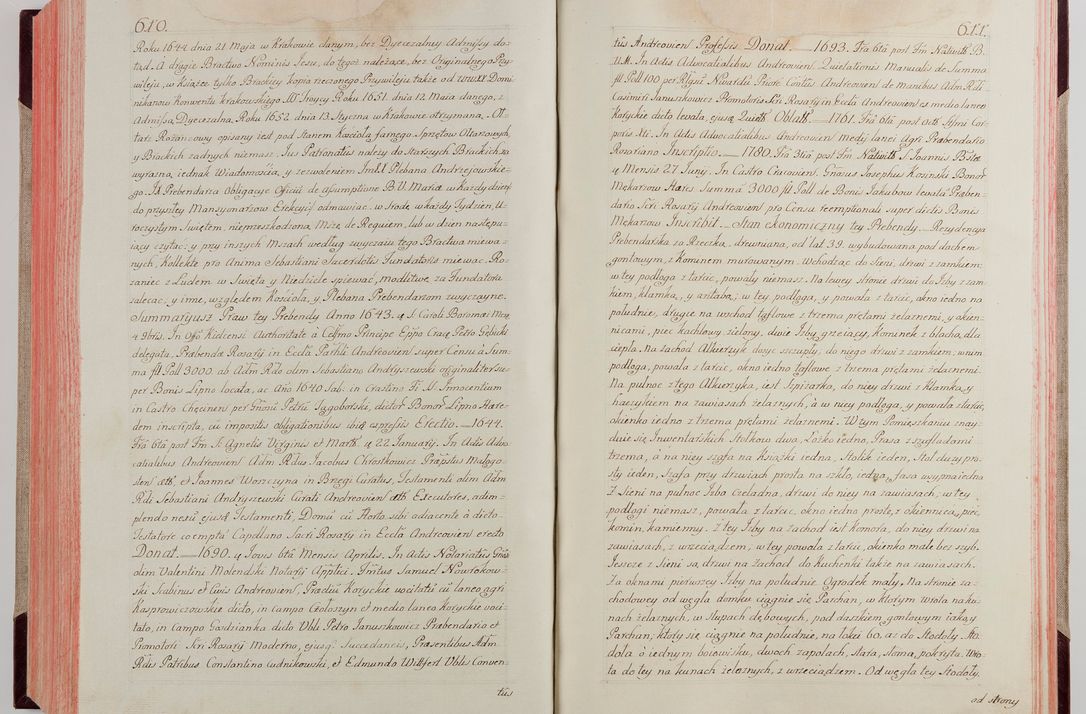 610.
Roku 1644 dnia 21 Maja w Krakowie danym, bez Dyecezalney Admissy do-
tąd. A drugie Bractwo Nominis Jesu, do tegoż należące, bez Originalnego Przy-
wileju, w Książce tylko Brackiey kopia rzeczonego Przywileju także od WWXX Domi
nikanow Konwentu krakowskiego SSS Troycy Roku 1651. dnia 12. Maia danego, z
Admissą Dyecezalną Roku 1652. dnia 13. Stycznia w Krakowie otrzymaną. Oł-
tarz Rożan: owy opisany iest pod Stanem Kościoła farnego Sprzętow Ołtarzowych
y Brackich żadnych niemasz. Jus Patronatus należy do Starszych Brackich, za
wyrazną iednak Wiadomością, y zezwoleniem Imści Plebana Andrzejowskie-
go. Jd Prebendarza Obligacye Officiū de Assumptione B. V. Mariæ w każdy dzień
do przyszłey Mansyonarzow Erekcyi odmawiac. w Srodę w każdy Tydzień, U-
roczystym Swiętem nieprzeszkodzoną Mszę de Requiem, lub w dzien następu-
iący czytać, y przy inszych Mszach według zwyczaiu tego Bractwa miewa-
nych, Kollektę pro Anima Sebastiani Sacerdotis Fundatoris miewac. Ro-
żaniec z Ludem w Swięta y Niedziele spiewać, modlitwę za Fundatora
zalecac, y inne, względem Kościoła, y Plebana Prebendarzom zwyczayne.
Summaryusz Praw tey Prebendy Anno 1643. 4 S. Caroli Boromæi Mens.
4 9bris. In Offō Kielcensi Authoritate à Celsmo Principe Eppo Cracę Petro Gębicki
delegata, Præbenda Rosarij in Eccla Parhli Andreovień super Censu à Sum-
ma fl. Poll 3000 ab Adm Rdo olim Sebastiano Andryszewski originaliter su-
per Bonis Lipno locata, ac Año 1640. Sab. in Crastino Ff. SS. Innocentium
in Castro Chęcineń per Gñosū Petrū Jagoborski, dictor Bonor Lipno Hære-
dem inscripta, cū impositis obligationibus ibiq expressis Erectio. — 1644.
Fria 6ta post Fm S. Agnetis Virginis et Mart. 4 22 Januarij. In Actis Advo
catialibus Andreovień Adm Rdus Jacobus Chrostkowicz Præptus Małogo-
steń etc. et Joannes Worszyna in Brzegi Curatus, Testamenti olim Adm
Rdi Sebastiani Andryszewski Curati Andreovień etc. Executores, adim-
plendo nexū ejusq Testamenti, Domū cū Horto, sibi adiacente à dicto
Testatore coemptū Capellano Sacri Rosarij in Eccla Andreovień erecto
Donat. — 1690. 4 Jovis 6ta Mensis Aprilis. In Actis Notariatus Gñosi
olim Valentini Molendski Notarij Applici. Fmtus Samuel Nowrokow-
ski Scabinus et Civis Andreovień, Prædiū Koryckie vocitatū cū laneo agri
Kasprowiczowskie dicto, in campo Czołoszyn et medio laneo Koryckie voci-
tato, in Campo Gardzianka dicto Vbli Petro Januszkowicz Præbendario et
Promotori Scri Rosarij Moderno, ejusq Succedaneis, Præsentibus Adm
Rdis Patribus Constantino Cudnikowski, et Edmundo Wittfert Vblis Conven-
tus
611.
tûs Andreovień Professis Donat. — 1693. Fria 6ta post Fm Nativitt. B.
V. M. In Actis Advocatialibus Andreovień Quietationis Manualis de Summa
fl. Poll 100 per Rlgm Nivardū Priorē Contus Andreovień de manibus Adm Rdi
Casimiri Januszkowicz Promotoris Scri Rosarij in Eccla Andreovień ex medio laneo
Koryckie dicto levata, ejusq Quiett. Oblatt. — 1761. Fria 6ta post octt. Ssmi Cor-
poris Xti. In Actis Advocatialibus Andreovień medij lanei Agri Præbendario
Rosariano Inscriptio. — 1780. Fria 3tia post Fm Nativitt. S. Joannis Bstæ
4 Mensis 27 Junij. In Castro Cracovień. Gñosus Josephus Kowinski Bonor
Mękarzow Hæres Summā 3000 fl. Poll. de Bonis Jakubow levatā Præben-
dario Scri Rosarij Andreovień pro Censu reemptionali super dictis Bonis
Mękarzow Inscribit. — Stan ekonomiczny tey Prebendy. Rezydencya
Prebendarska za Rzeczką, drewniana, od lat 39. wybudowana pod dachem
gontowym, z Kominem murowanym. Wchodząc do Sieni, drzwi z zamkiem;
w tey podłoga z tarcic, powały niemasz. Na lewey stronie drzwi do Jzby z zam-
kiem, klamką, y antabą; w tey podłoga, y powała z tarcic, okno iedno na
południe, drugie na wschod taflowe z trzema prętami żelaznemi, y okien-
nicami, piec kachlowy zielony, dwie Jzby grzeiący, Komunek z blachą, dla
ciepła. Na zachod Alkierzyk dosyc szczupły, do niego drzwi z zamkiem, w nim
podłoga, powała z tarcic, okno iedno taflowe z trzema prętami żelaznemi.
Na pulnoc z tego Alkierzyka, iest Szpizarka, do niey drzwi z Klamką, y
haczykiem na zawiasach żelaznych, à w niey podłoga, y powała z tarcic,
okienko iedno z trzema prętami żelaznemi. W tym Pomięszkaniu znay-
duie się Inwentarskich Stołkow dwa, Łożko iedno, Prasa z szufladami
trzema, à na niey szafa na książki iedna, Stolik ieden, Stoł duży pro-
sty ieden, Szafa przy drzwiach prosta na szkło, iedna, fasa wyprożniedna
Z Sieni na pulnoc Jzba Czeladna, drzwi do niey na zawiasach, w tey
podłogi niemasz, powała z tarcic, okno iedno proste, z okiennicą, piec
komin kamienny. Z tey Jzby na zachod iest Komora, do niey drzwi na
zawiasach, z wrzeciądzem; w tey powała z tarcic, okienko małe bez szyb.
Jeszcze z Sieni są drzwi na zachod do Kuchenki także na zawiasach.
Za oknami pierwszey Jzby na południe Ogrodek mały. Na stronie za-
chodowey od węgła domku ciągnie się Parchan, w ktorym Wrota na ku-
nach żelaznych, w słupach dębowych, pod daszkiem gontowym takąż
Parchan; ktory się ciągnie na południe, na łokci 60. aż do Stodoły. Sto-
doła o iednym boiowisku, dwoch zapolach, stara, słomą, pokryta. Wro-
ta do tey na kunach żelaznych, z wrzeciądzem. Od węgła tey Stodoły
od strony